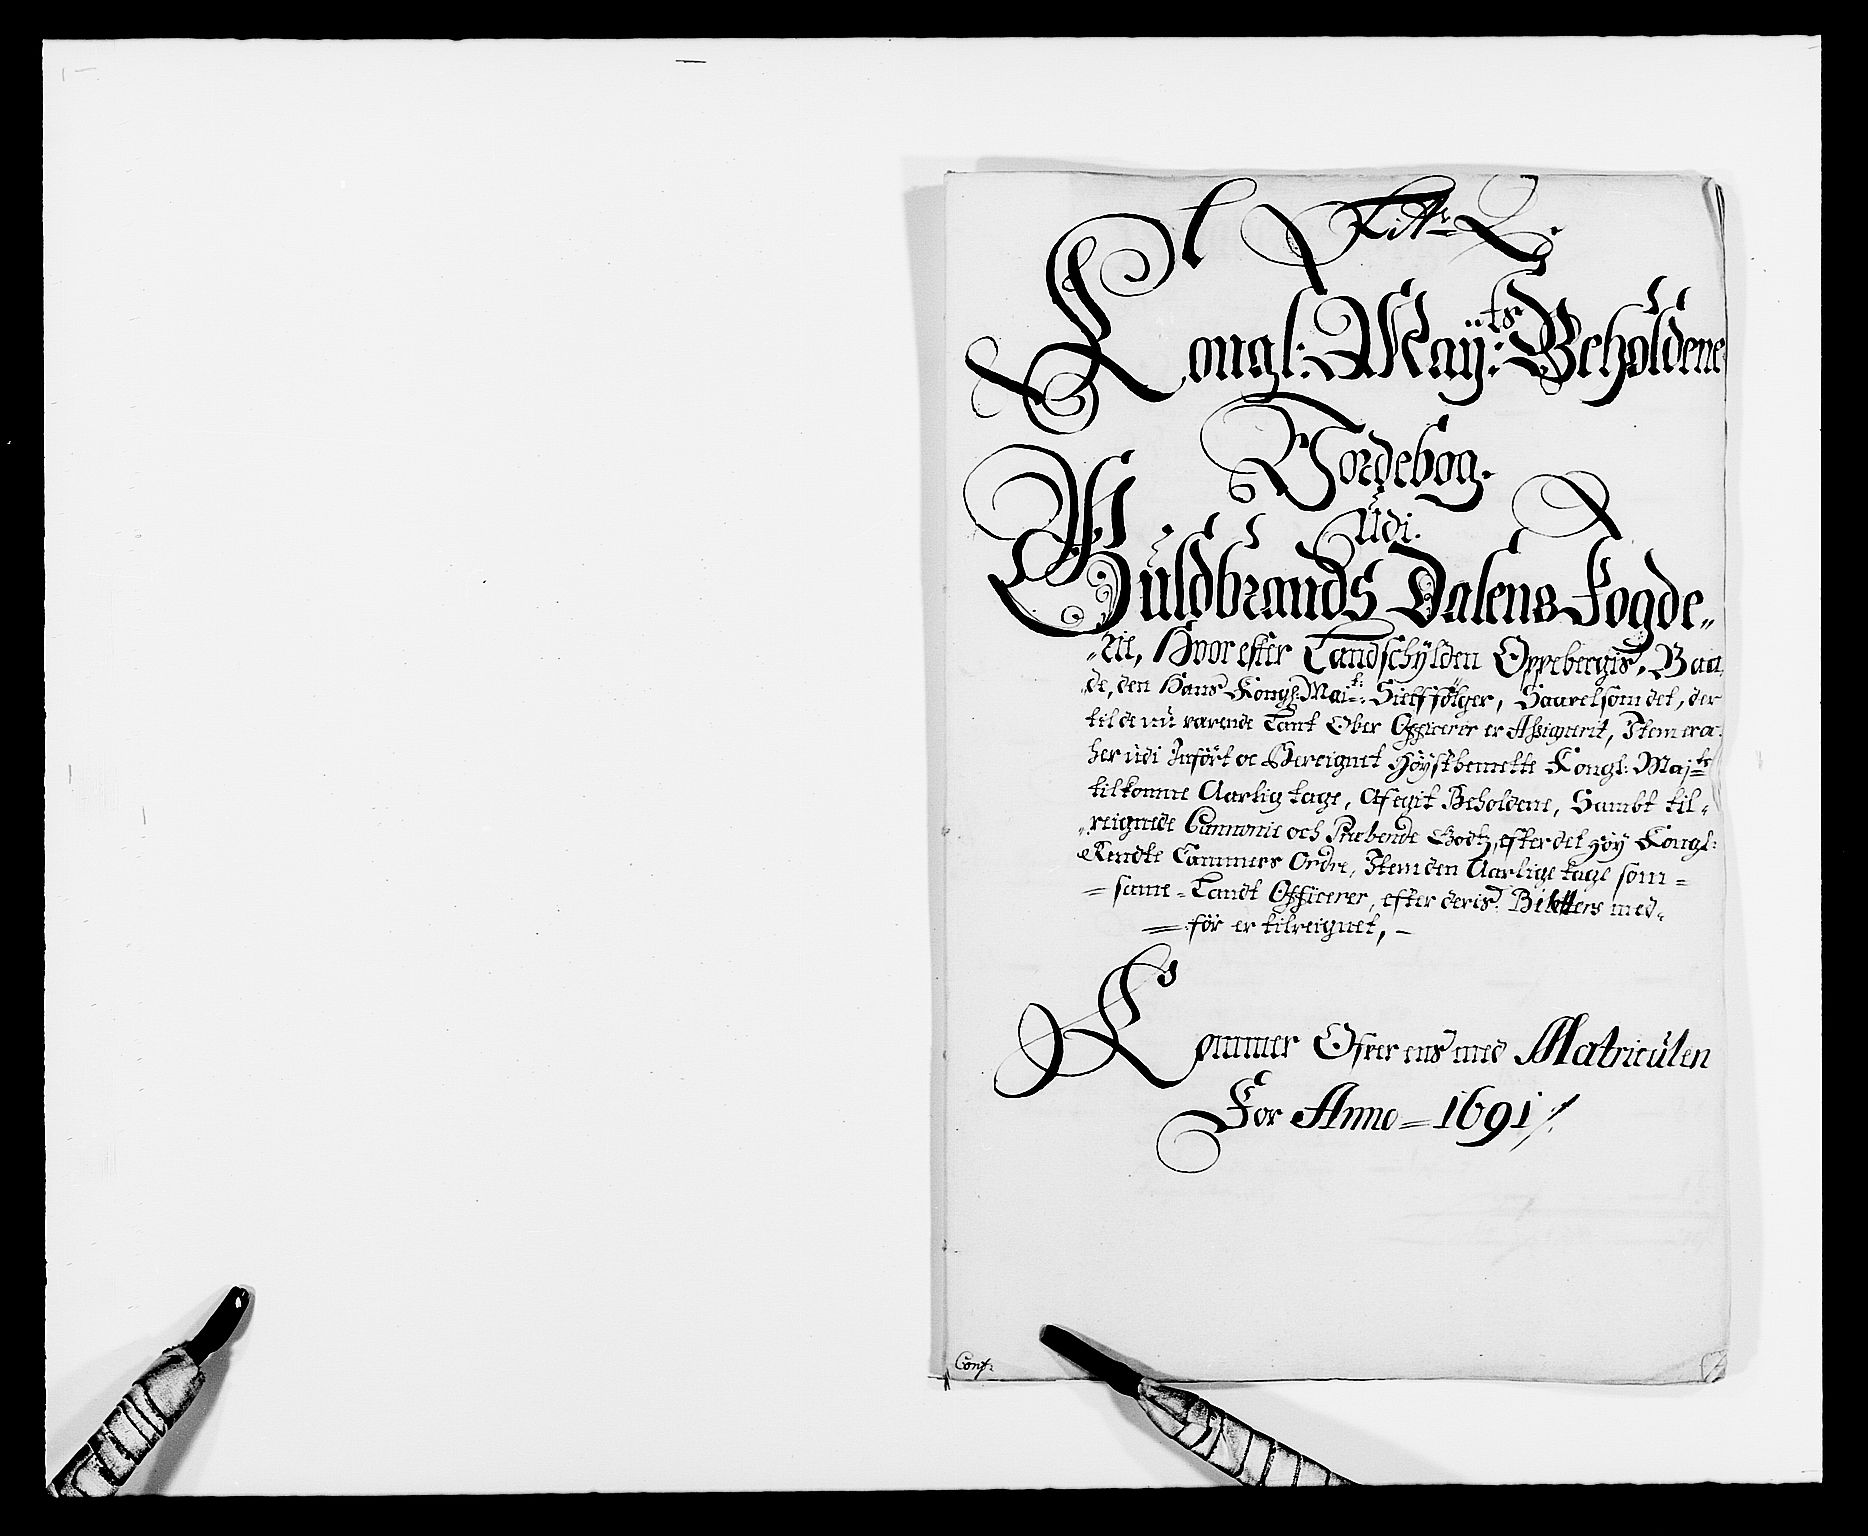 Litr Q.
Kongl: Maÿts: Beholdene
Jordebog.
Udi.
Guldbrands Dalens Fogde„
„rie, Hvor efter Landschÿlden Oppebergis, Baa
de, den Hans Kongl: Mait: Sielf følger, Saavelsom det, der
til de nu værende Land Ober Officerer er Assignerit, Item era
her udi Inført oc Bereignet Høÿstbemelte Kongl: Majts
tilkomne Aarlig tage, Afegit Beholdene, Sambt til„
„reignede Cannonie och Præbende Godtz, efter det Høÿ Kongl:
Rendte Cammers Ordre, Item den Aarlige tage som =
= same = Landt Officerer, efter deris Biletters med„
= før er tilreignet, –
Kommer Ofver ens med Matriculen
For Anno = 1691 /.
Conf: